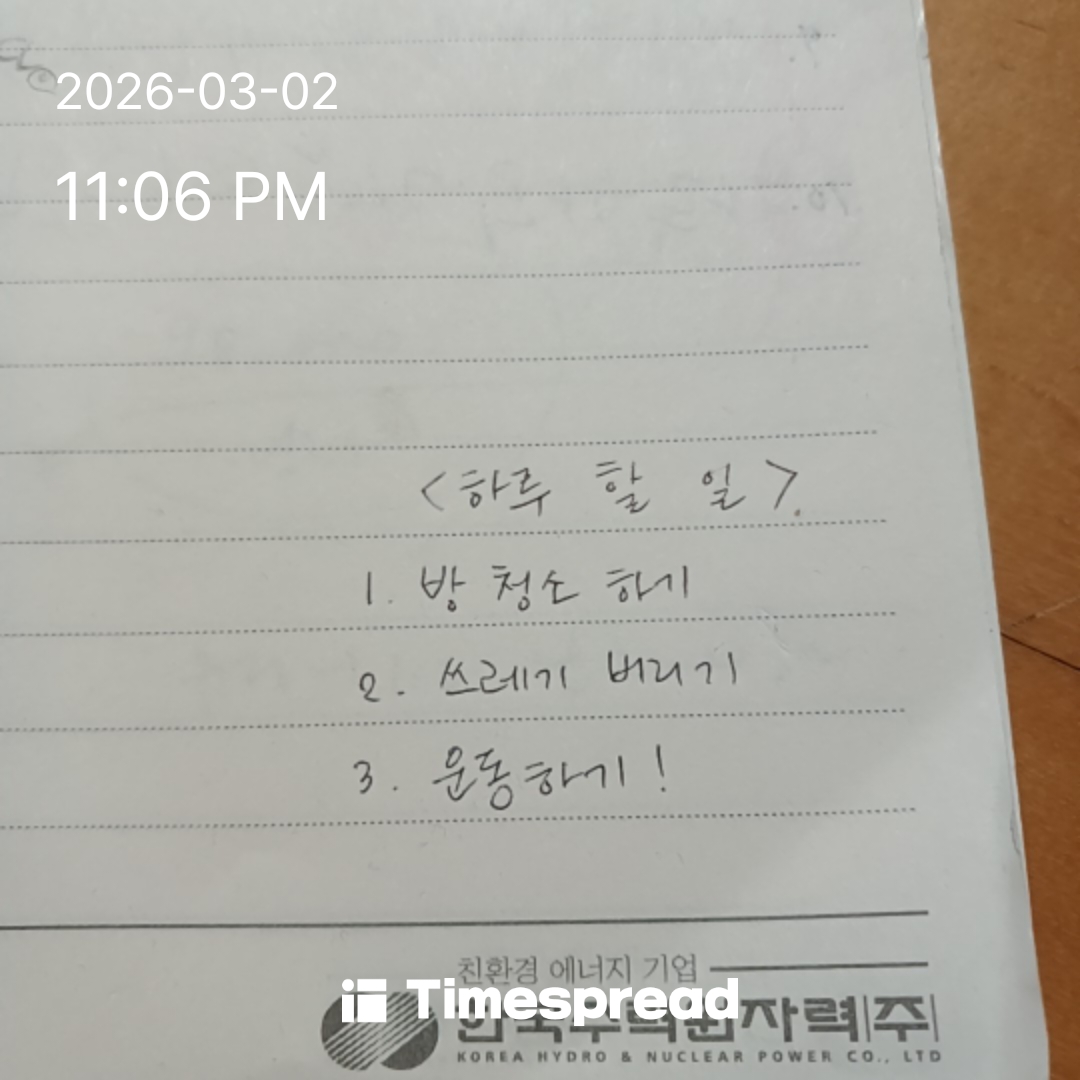 2026-03-02
11:06 PM
<하루 할 일>.
1. 방 청소 하기
2. 쓰레기 버리기
3. 운동하기!
친환경 에너지 기업
Timespread
한국수력원자력(주)
KOREA HYDRO & NUCLEAR POWER CO., LTD